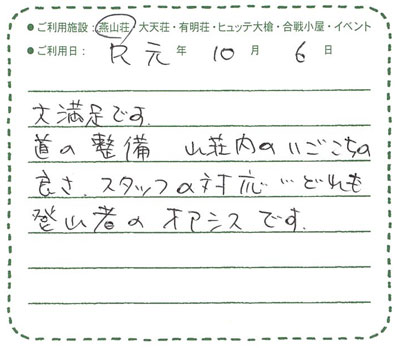 ●ご利用施設:燕山荘・大天荘・有明荘・ヒュッテ大槍・合戦小屋・イベント
●ご利用日: R元 年 10 月 6 日
大満足です.
道の整備 山荘内のいごこちの
良さ.スタッフの対応…どれも
登山者のオアシスです.